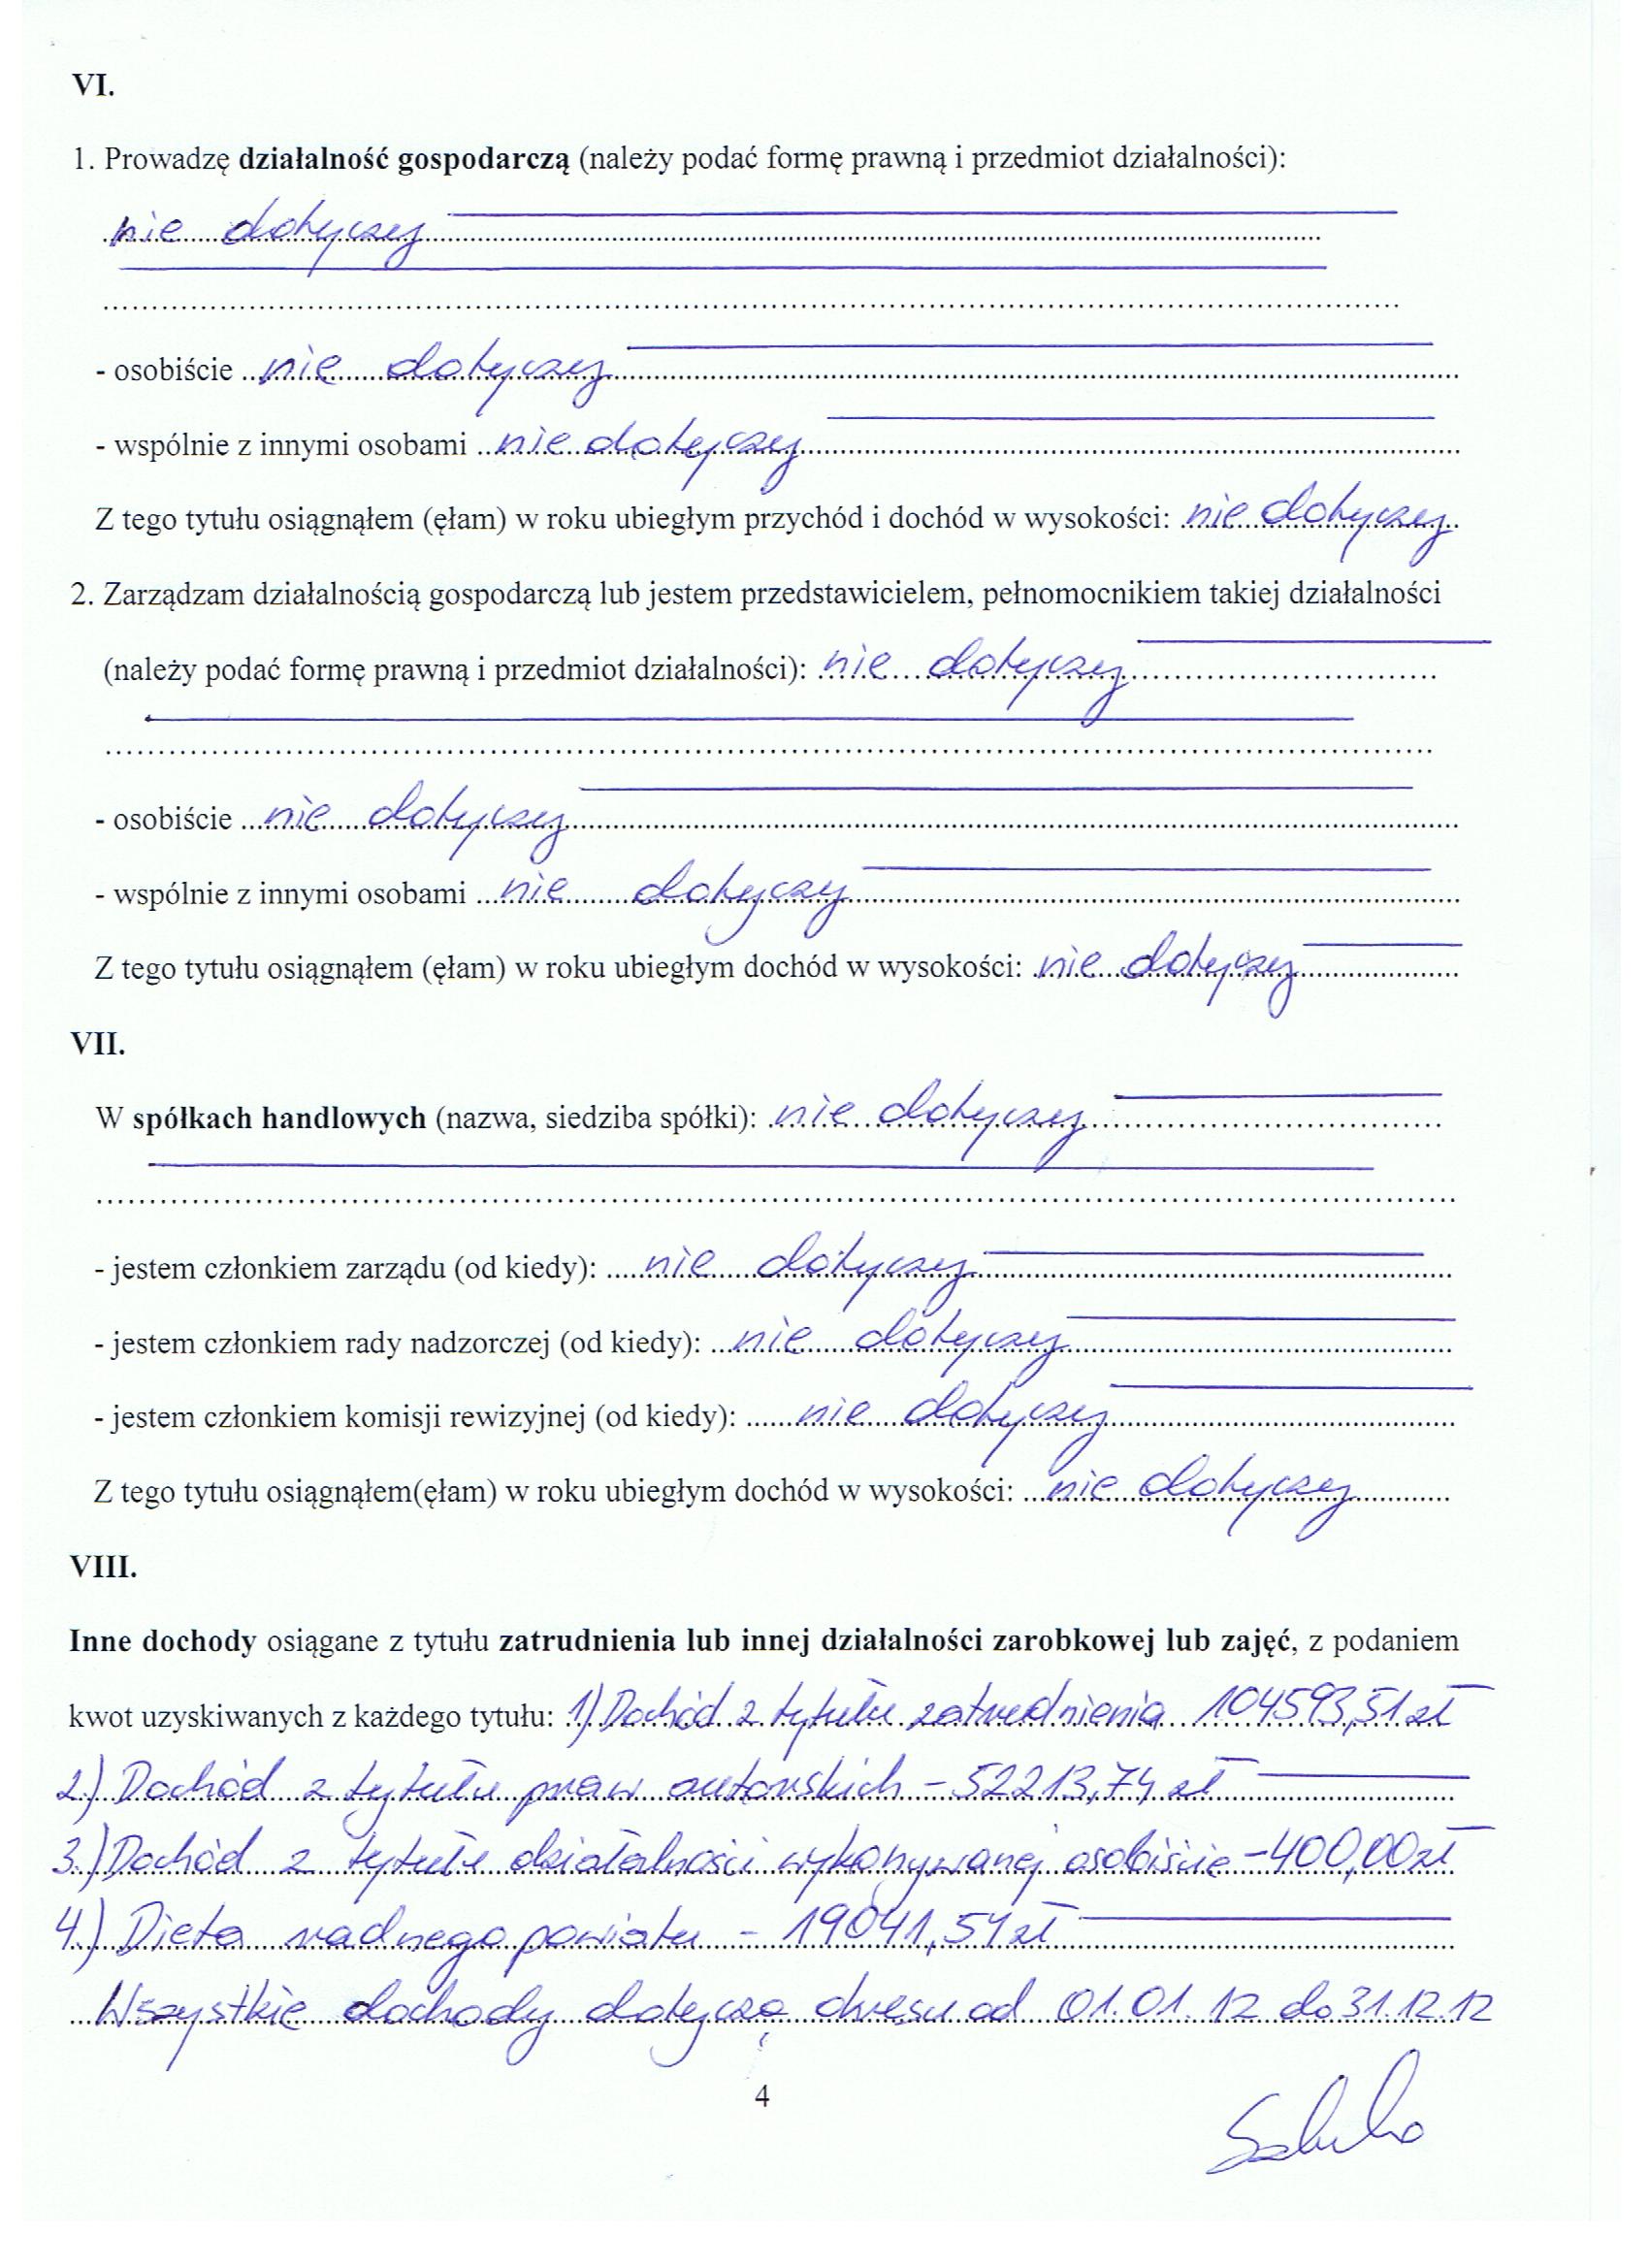 VI.
1. Prowadzę działalność gospodarczą (należy podać formę prawną i przedmiot działalności):
nie dotyczy
- osobiście nie dotyczy
- wspólnie z innymi osobami nie dotyczy
Z tego tytułu osiągnąłem (ęłam) w roku ubiegłym przychód i dochód w wysokości: nie dotyczy
2. Zarządzam działalnością gospodarczą lub jestem przedstawicielem, pełnomocnikiem takiej działalności
(należy podać formę prawną i przedmiot działalności): nie dotyczy
- osobiście nie dotyczy
- wspólnie z innymi osobami nie dotyczy
Z tego tytułu osiągnąłem (ęłam) w roku ubiegłym dochód w wysokości: nie dotyczy
VII.
W spółkach handlowych (nazwa, siedziba spółki): nie dotyczy
- jestem członkiem zarządu (od kiedy): nie dotyczy
- jestem członkiem rady nadzorczej (od kiedy): nie dotyczy
- jestem członkiem komisji rewizyjnej (od kiedy): nie dotyczy
Z tego tytułu osiągnąłem(ęłam) w roku ubiegłym dochód w wysokości: nie dotyczy
VIII.
Inne dochody osiągane z tytułu zatrudnienia lub innej działalności zarobkowej lub zajęć, z podaniem
kwot uzyskiwanych z każdego tytułu: 1) Dochód z tytułu zatrudnienia 104593,51 zł
2) Dochód z tytułu praw autorskich - 52213,74 zł
3.) Dochód z tytułu działalności wykonywanej osobiście - 400,00 zł
4.) Dieta radnego powiatu - 19041,54 zł
Wszystkie dochody dotyczą okresu od 01.01.12 do 31.12.12
4